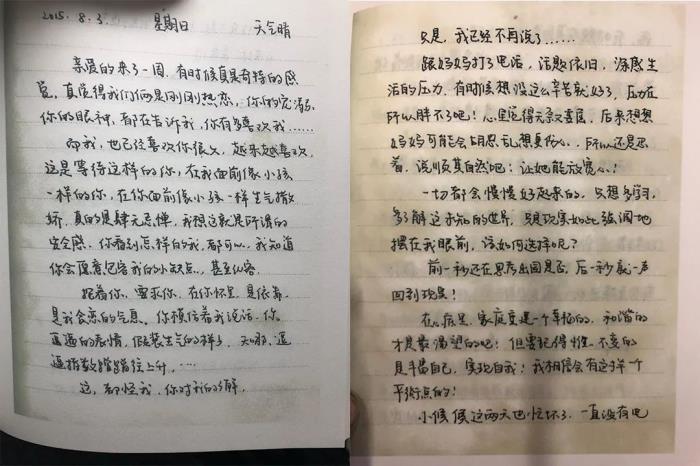 2015. 8. 3. 星期日 天气晴
亲爱的来了一周，有时候真是奇特的感
觉，真觉得我们俩是刚刚热恋，你的
你的眼神，都在告诉我，你有多喜欢我……
而我，也已经喜欢你很久，越来越喜欢，
这是等待这样的你，在我面前像小孩
一样的你，在你面前像小孩一样生气撒
娇，真的是肆无忌惮，我想这就是所谓的
安全感，你看到怎样的我，都可以，我知道
你会愿意包容我的小缺点，甚至
抱着你，要求你，在你怀里，是依靠
是我贪恋的气息。你模仿着我说话，你
逗逼的表情，假装生气的样子，天哪，逗
逼指数蹭蹭往上升，……
这，都怪我，你对我的
只是，我已经不再说了……
跟妈妈打了电话，话题依旧，深感生
活的压力，有时候想没这么辛苦就好了，压力在
所以胖不了吧！心里觉得
妈妈可能会胡思乱想更伤心，所以还是忍
着，说顺其自然吧！让她能放宽心！
一切都会慢慢好起来的，只想多学习，
多了解这未知的世界，只是现实如此强调地
摆在我眼前，该如何选择呢？
前一秒还在思考出国是否，后一秒就一声
回到现实！
在，家庭变是一个幸福的，和谐的
才是最渴望的吧！但要记得惟一不变的
是丰富自己，实现自我！我相信会有这样一个
平衡点的！
小候候这两天也忙坏了，一直没有电